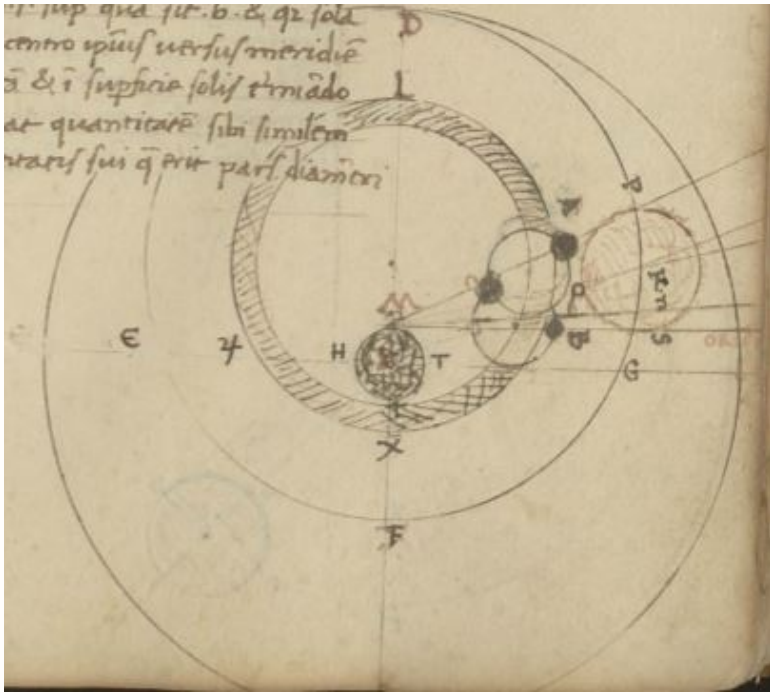 sup qua sit .b. & qz sola
centro ipius uersus meridiē
& ī supficie solis t'mādo
at quantitatē sibi similem
sui q̄ erit pars diametri
D
L
P
A
M
O
B
S
E
H
T
G
X
F